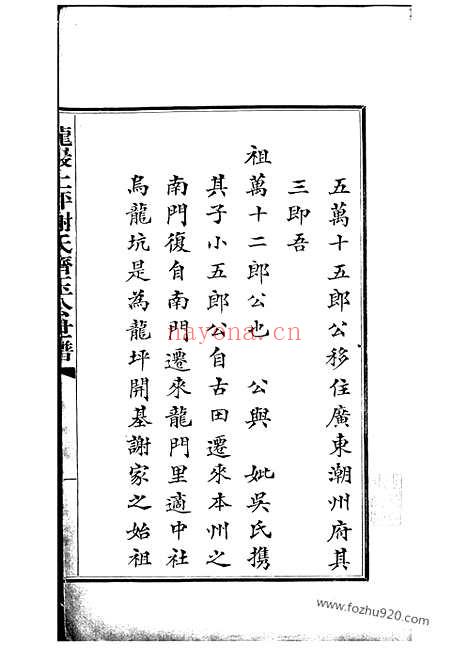 五萬十五郎公移住廣東潮州府其
三即吾
祖萬十二郎公也　公與　妣吳氏携
其子小五郎公自古田遷來本州之
南門復自南門遷來龍門里適中社
烏龍坑是為龍坪開基謝家之始祖
龍巖上坪謝氏 公世譜
一
nayona.cn
www.fozhu920.com